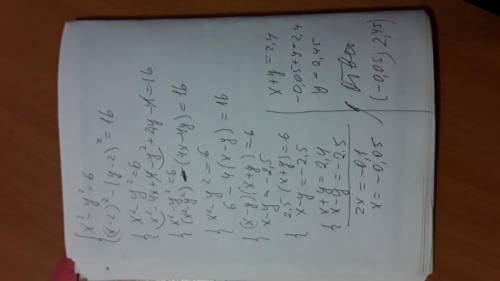 { x²-y²=6
(x-2)²-(y-2)²=16
{ x²-y²=6
x²-4x+4-y²+4y-4=16
{ x²-y²=6
(x²-y²)-(4x-4y)=16
{ x²-y²=6
6-4(x-y)=16
{ (x-y)(x+y)=6
x-y=-2,5
{ -2,5(x+y)=6
x-y=-2,5
{ x+y=2,4
x-y=-2,5
2x=-0,1
x=-0,05
x+y=2,4
-0,05+y=2,4
y=0,45
Ответ
(-0,05; 2,45)